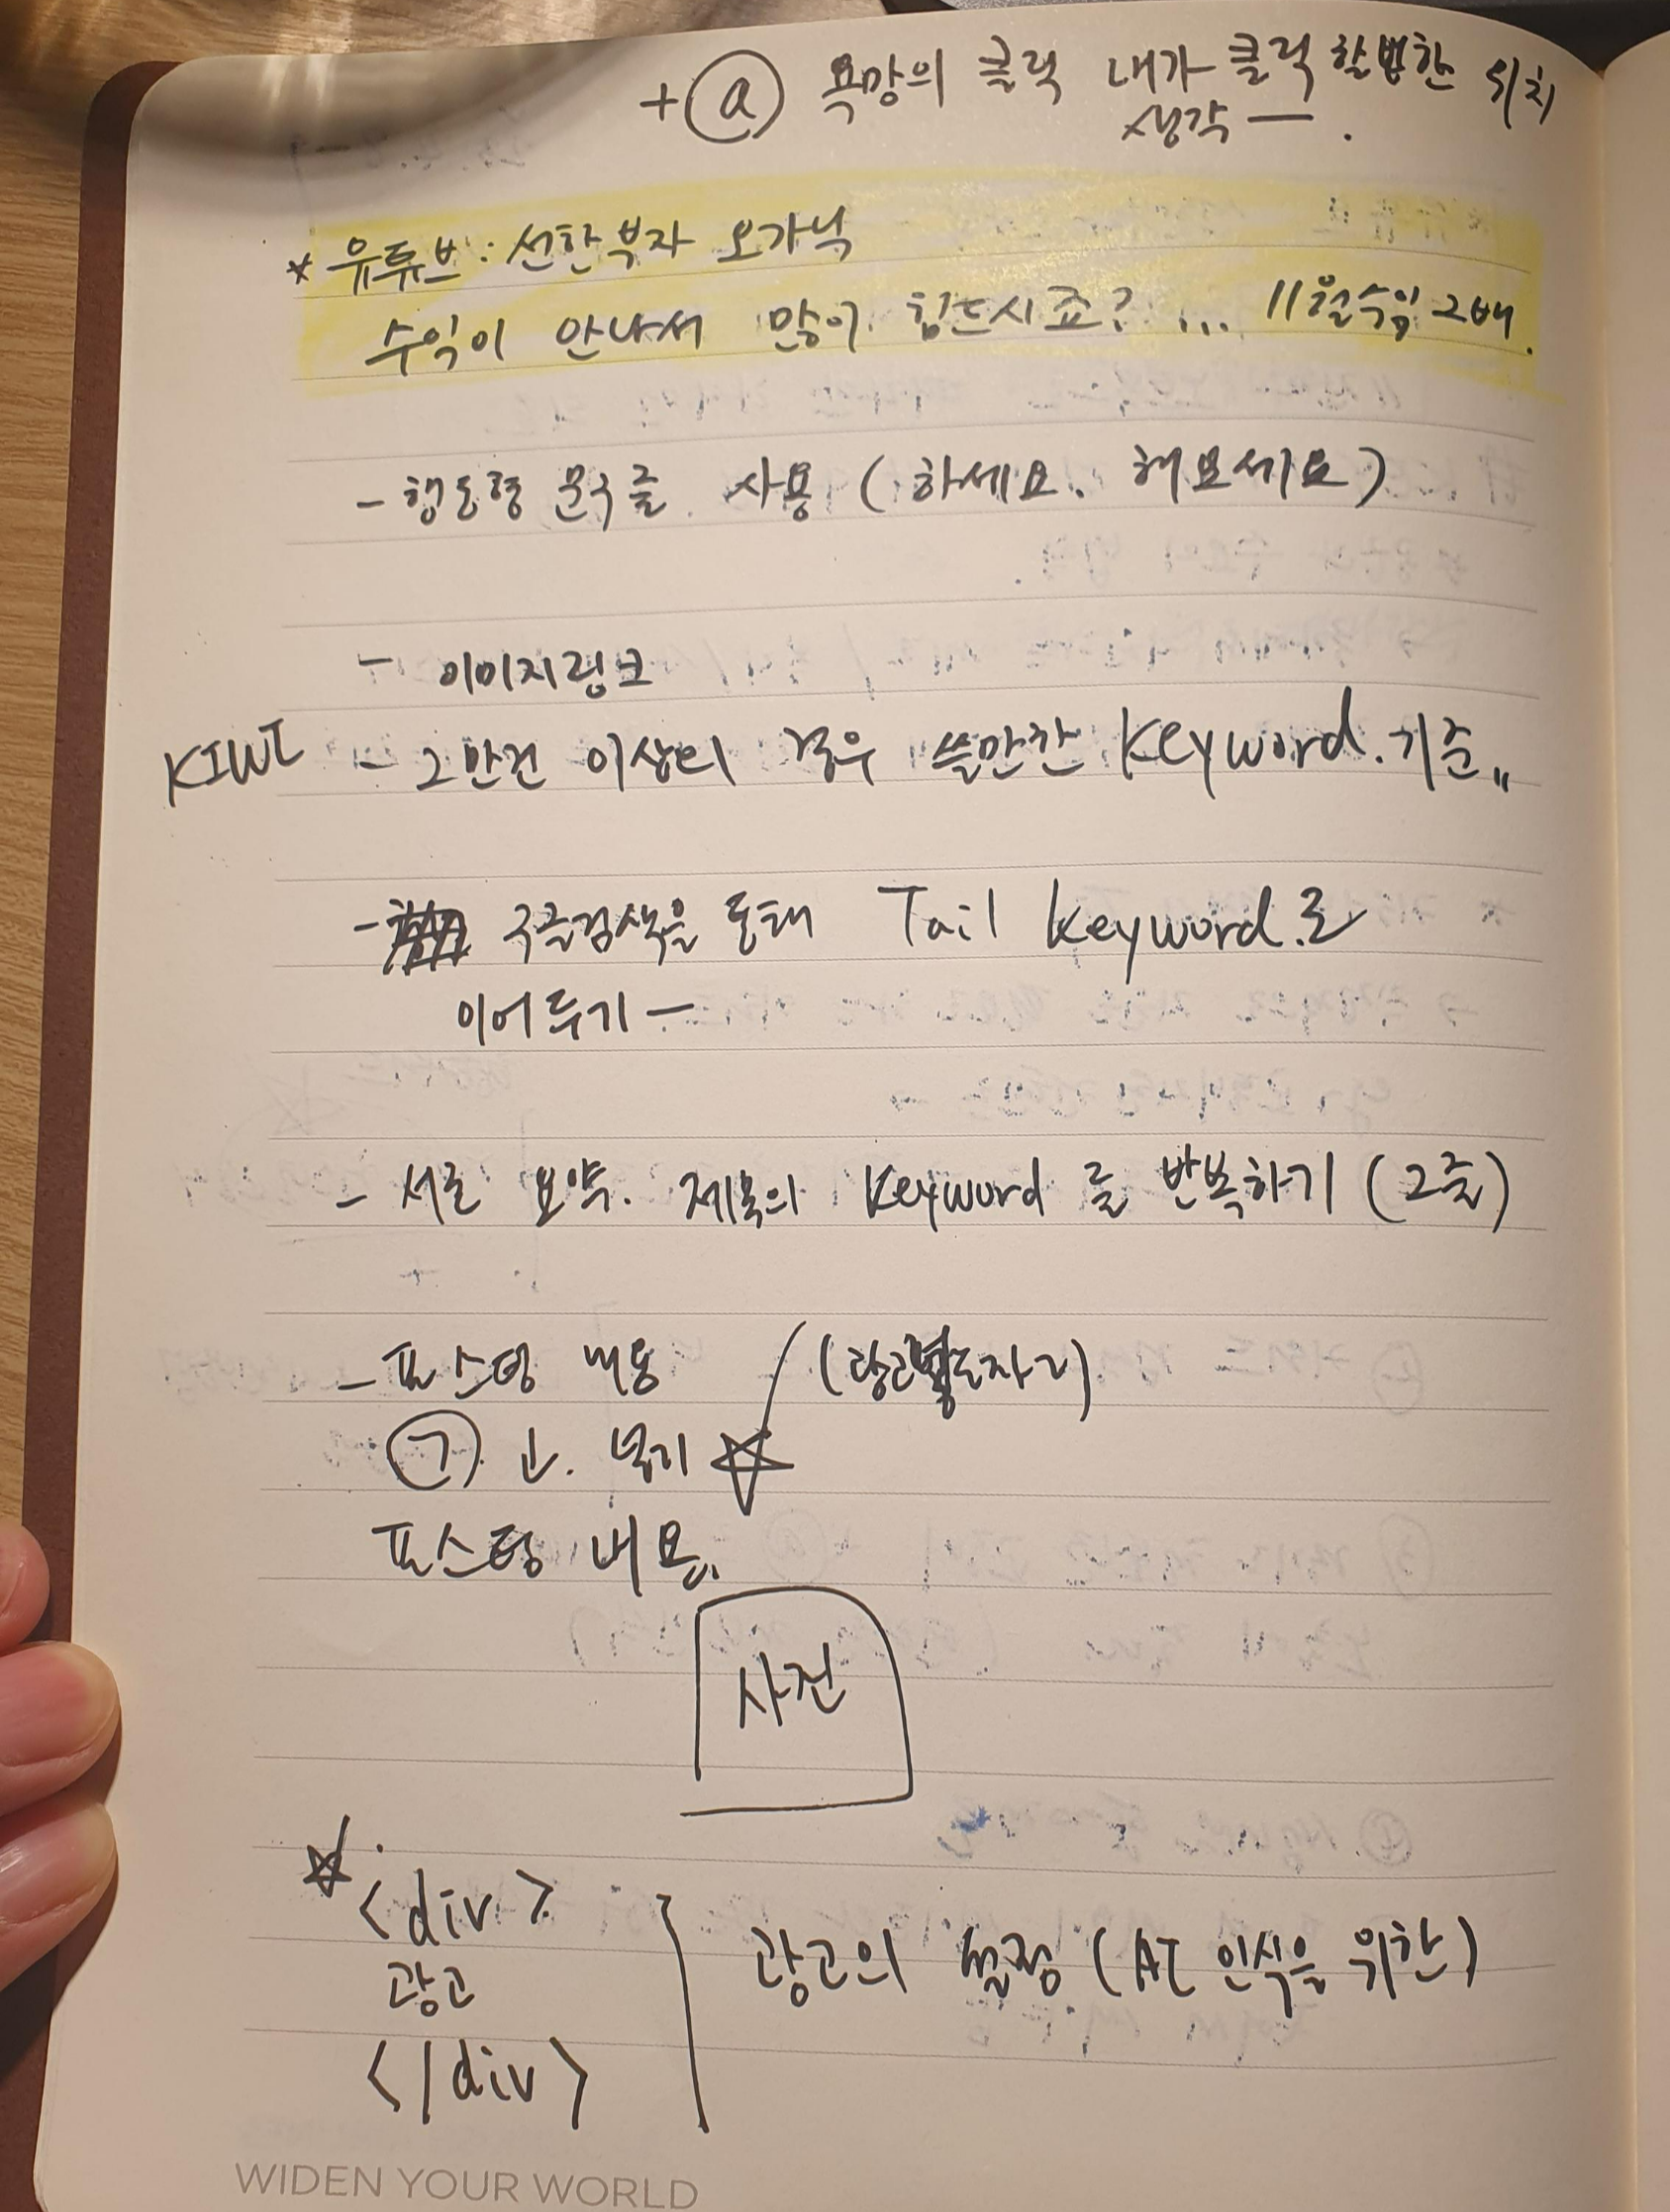 +ⓐ 욕망의 클릭 내가 클릭 할법한 위치
생각 ㅡ.
* 유튜브 : 선한부자 오가닉
수익이 안나서 많이 힘드시죠? ... 11월수익 2배.
- 행동형 문구를 사용 (하세요. 해보세요)
- 이미지링크
KIWI - 2만건 이상의 경우 쓸만한 Keyword.기준"
- 구글검색을 통해 Tail keyword.로
이어두기 ㅡ
- 서로 요약. 제목의 Keyword 를 반복하기 (2줄)
- 포스팅 내용 (광고 자리)
ㄱ ↓. 넣기 ☆
포스팅 내용.
사진
☆ <div>
광고
</div>
광고의 설정 (AI 인식을 위한)
WIDEN YOUR WORLD